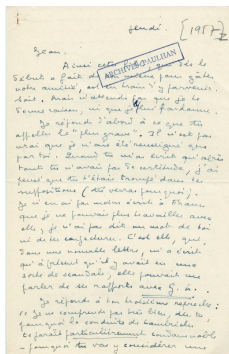 jeudi. [1957]
Jean,
Ainsi cette
ARCHIVES PAULHAN
début a fait de son mieux pour gâter
notre amitié, est en train d'y parvenir.
Soit. Mais n'attends pas que je te
donne raison, ni que je
Je réponds d'abord à ce que tu
appelles le "plus grave". Il n'est pas
vrai que je n'aie été renseigné que
par toi. Quand tu m'as écrit qu'après
tout tu n'avais pas de certitude, j'ai
pensé que tu t'étais trompé dans les
suppositions (tu verras pourquoi).
Je n'en ai pas moins écrit à
que je ne pouvais plus travailler avec
elle, je n'ai pas dit un mot de toi
ni de tes conjectures. C'est elle, qui,
dans une nouvelle lettre, m'a écrit
qu'il fallait qu'il y ait eu une
sorte de scandale, elle pouvait me
parler de ses rapports avec G. L.
Je réponds à ton troisième reproche :
"Je ne comprends pas très bien, dis-tu,
pourquoi la conduite de
te paraît particulièrement condamnable
- pourquoi tu vas y considérer une